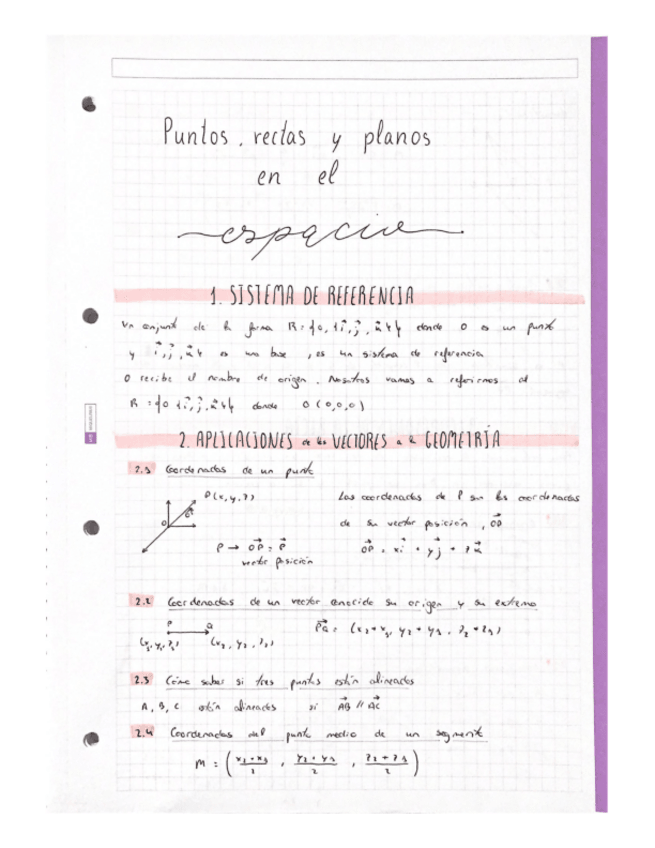 Puntos, rectas y planos
en el
espacio
1. SISTEMA DE REFERENCIA
Un conjunto de la forma R = {O, {i⃗, j⃗, u⃗}} donde O es un punto
y i⃗, j⃗, u⃗ es una base, es un sistema de referencia
O recibe el nombre de origen. Nosotros vamos a referirnos al
R = {O {i⃗, j⃗, u⃗}} donde O (0,0,0)
2. APLICACIONES de los VECTORES a la GEOMETRÍA
2.1 Coordenadas de un punto
P(x, y, z)
Las coordenadas de P son las coordenadas
O
de su vector posición, OP⃗
P → OP⃗ = P⃗
OP⃗ = xi⃗ + yj⃗ + zu⃗
vector posición
2.2 Coordenadas de un vector conocido su origen y su extremo
P Q
PQ⃗ =
(x₁, y₁, z₁) (x₂, y₂, z₂)
2.3 Cómo saber si tres puntos están alineados
A, B, C están alineados si AB⃗ // AC⃗
2.4 Coordenadas del punto medio de un segmento
M =